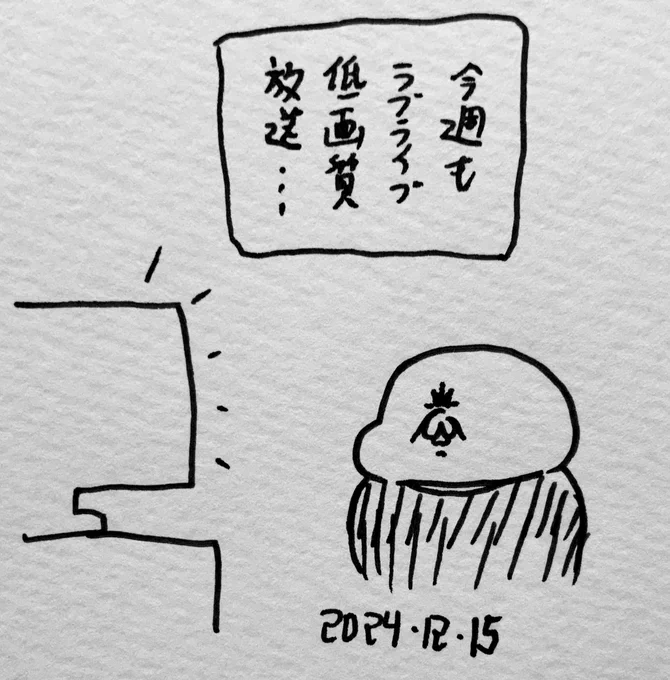 今週も
ラブライブ
低画質
放送…
2024.12.15